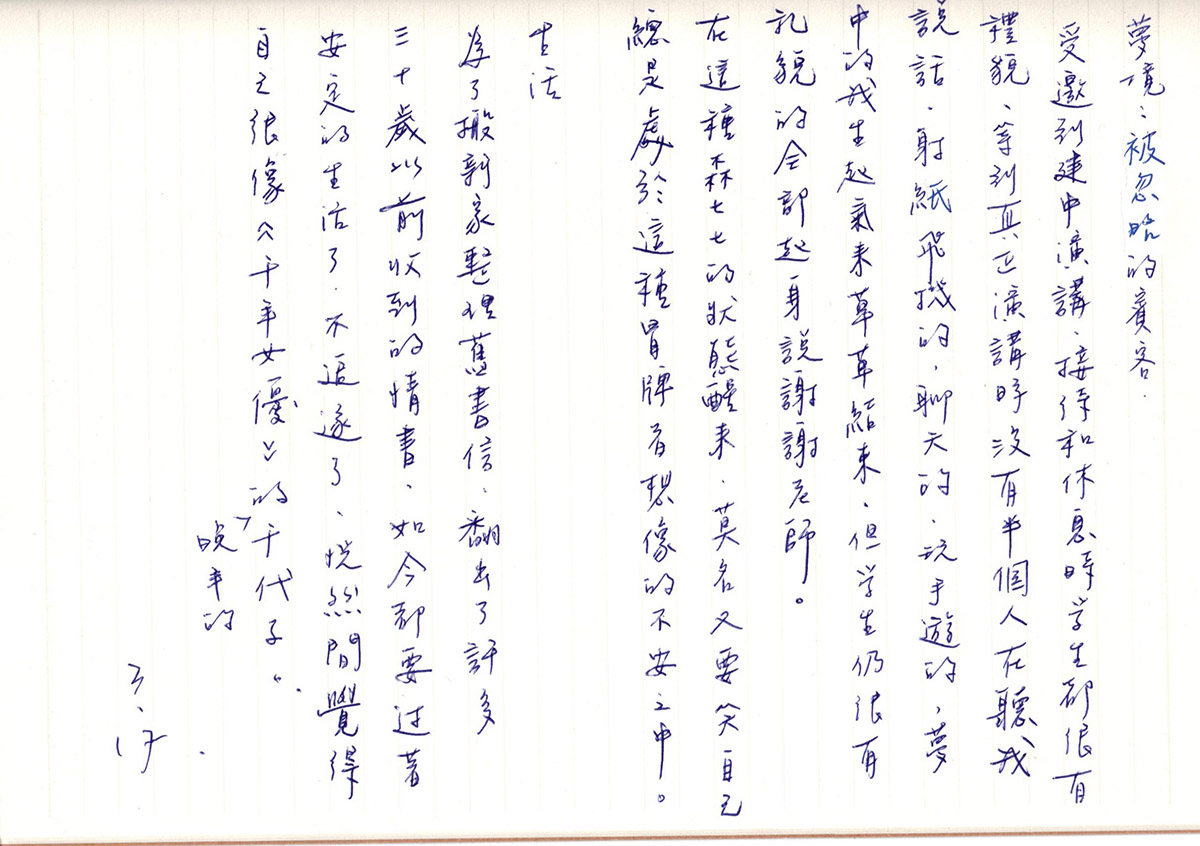 夢境：被忽略的賓客．
受邀到建中演講、接待和休息時学生都很有
禮貌、等到真正演講時没有半個人在聽我
說話、射紙飛機的、聊天的、玩手遊的，夢
中的我生起氣来草草結束、但学生仍很有
礼貌的全部起身説謝謝老師。
在這種森七七的狀態醒来、莫名又要笑自己
總是處於這種冒牌者想像的不安之中。
生活
為了搬新家整理舊書信、翻出了許多
三十歲以前收到的情書、如今都要过着
安定的生活了．不追逐了、恍然間覺得
自己很像《千年女優》的千代子。
晚年的
3、17．